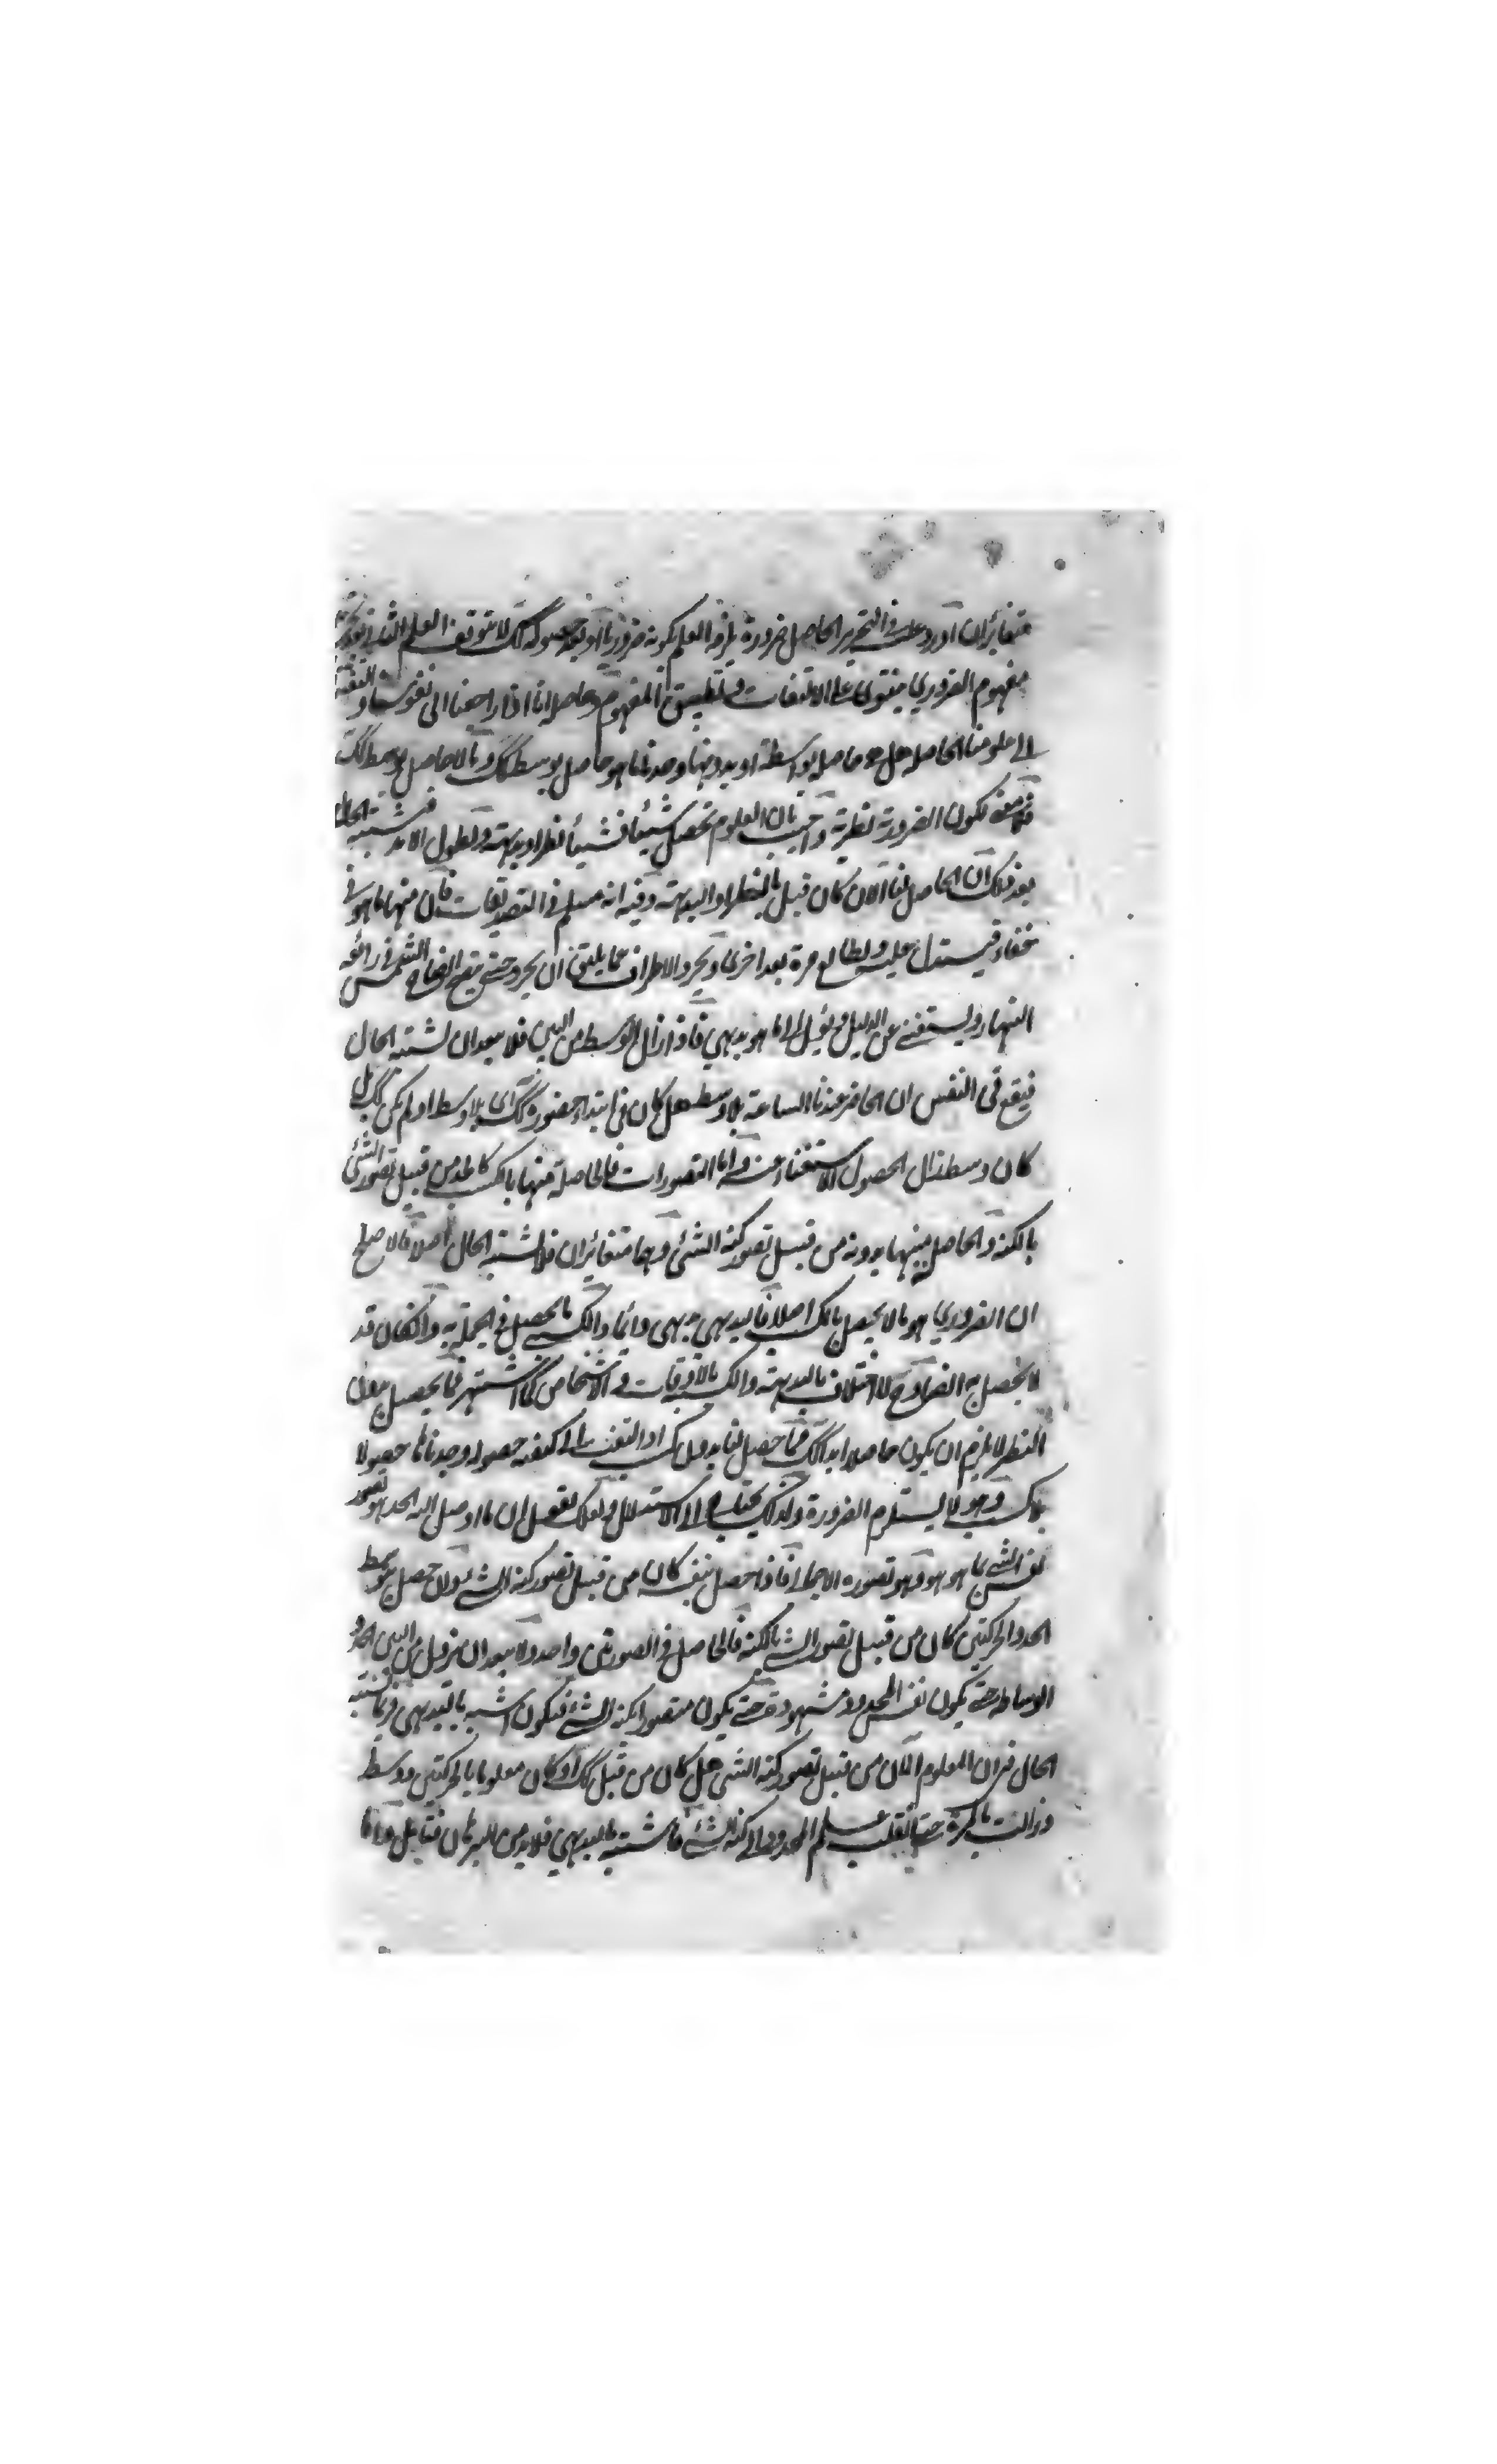 متغائران اورد عليه في التحرير الحاصل ضرورة يلزمه العلم بكونه ضروريا او بعد حصوله كك لا يتوقف العلم الثاني
مفهوم الضروري سوى على الالتفات وتطبيق المفهوم وحاصله انا اذا راجعنا الى نفوسنا و
الى علومنا الحاصلة هل هو حاصلة بواسطة او بدونها وجدنا ما هو حاصل بوسط كك وما لا حاصل بوسط كك
فلا معنى لكون الضرورية نظرية واجيب بان العلوم تحصل شيئا فشيئا نظرا وبديهة ولطول الامد يشتبه الحال
بعد ذلك ان الحاصل لنا الآن كان قبل بالنظر او البديهة وفيه انه مسلم في التصديقات فان منها ما هو في
خفاء فيستدل عليه ويطالع مرة بعد اخرى ويجرد الاطراف عما يليق ان يجرد حتى يتضح اتضاح الشمس في رائعة
النهار ويستغنى عن الدليل ويؤل الى ما هو بديهي فاذا زال الوسط من البين فلا يبعد ان يشتبه الحال
فيقع في النفس ان الحاضر عندنا الساعة بلا وسط هل كان في ابتداء حضوره كك اي بلا وسط او لم يكن كك بل
كان وسط فزال لحصول الاستغناء عنه واما التصورات فالحاصلة منها بالكسب كالحد من قبيل تصور الشئ
بالكنه والحاصل منها بدونه من قبيل تصور كنه الشئ وهما متغائران فلا يشتبه الحال اصلا فالاصلح
ان الضروري هو ما لا يحصل بالكسب اصلا فالبديهي بديهي دائما والكسبي ما يحصل في الجملة به وان كان قد
لا يحصل به ايضا وح لا اختلاف بالبديهة والكسب بالاوقات والاشخاص كما اشتهر فما يحصل بدون
النظر لا يلزم ان يكون حاصلا ابدا كك فما حصل لنا بدون كسب اذا التفت الى كيفية حصوله وجدنا لها حصولا
بلا كسب وهو لا يستلزم الضرورة ولذلك يحتاج الى الاستدلال ولعلك تقول ان ما اوصل اليه الحد هو تصور
نفس الشئ بما هو هو وهو تصوره الاجمالي فاذا حصل بنفسه كان من قبيل تصور كنه الشئ وان حصل بتوسط
الحد والحركتين كان من قبيل تصور الشئ بالكنه فالحاصل في الصورتين واحد ولا يبعد ان يزول من البين الحد و
الوساطة حتى يكون نفس المحدود مشهودة حتى يكون متصورا بكنه الشئ فيكون اشبه بالبديهي فربما يشتبه
الحال في ان المعلوم الآن من قبيل تصور كنه الشئ هل كان من قبل كك او كان معلوما بالحركتين ووسط
وزالت بالكثرة حتى انقلب علم المحدود الى كنه الشئ فاشتبه بالبديهي فلا بد من البرهان فتامل واما